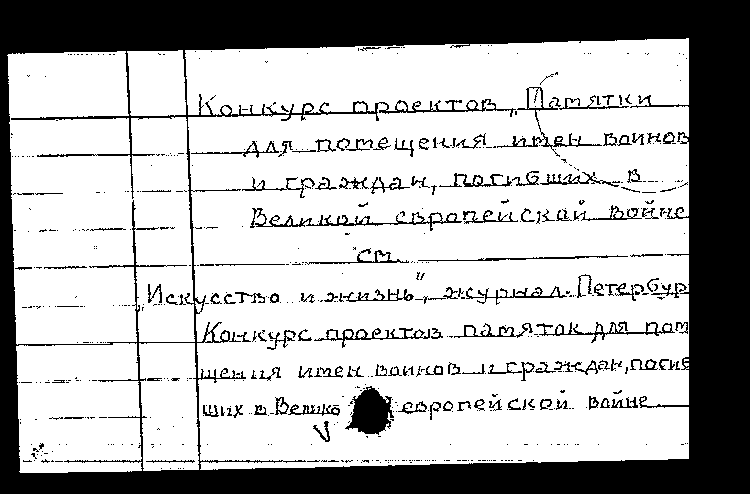 Конкурс проектов „Памятки
для помещения имен воинов
и граждан, погибших в
Великой европейской войне
см.
„Искусство и жизнь", журнал. Петербур
Конкурс проектов памяток для пом
щения имен воинов и граждан, погиб
ших в Велико европейской войне.